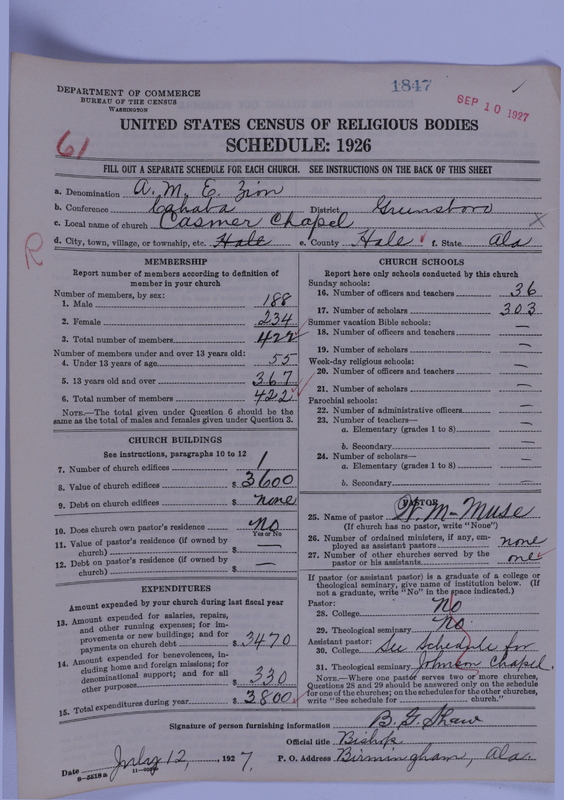 1847
SEP 10 1927
DEPARTMENT OF COMMERCE
BUREAU OF THE CENSUS
WASHINGTON
UNITED STATES CENSUS OF RELIGIOUS BODIES
SCHEDULE: 1926
61
FILL OUT A SEPARATE SCHEDULE FOR EACH CHURCH. SEE INSTRUCTIONS ON THE BACK OF THIS SHEET
a. Denomination A. M. E. Zion
b. Conference Cahaba District Greensboro
c. Local name of church Casmer Chapel X
R
d. City, town, village, or township, etc. Hale e. County Hale f. State Ala
MEMBERSHIP
Report number of members according to definition of
member in your church
Number of members, by sex:
1. Male 188
2. Female 234
3. Total number of members 422
Number of members under and over 13 years old:
4. Under 13 years of age 55
5. 13 years old and over 367
6. Total number of members 422
NOTE.—The total given under Question 6 should be the
same as the total of males and females given under Question 3.
CHURCH BUILDINGS
See instructions, paragraphs 10 to 12
7. Number of church edifices 1
8. Value of church edifices $ 3600
9. Debt on church edifices $ none
10. Does church own pastor's residence No
Yes or No
11. Value of pastor's residence (if owned by
church) $ —
12. Debt on pastor's residence (if owned by
church) $ —
EXPENDITURES
Amount expended by your church during last fiscal year
13. Amount expended for salaries, repairs,
and other running expenses; for im-
provements or new buildings; and for
payments on church debt $ 3470
14. Amount expended for benevolences, in-
cluding home and foreign missions; for
denominational support; and for all
other purposes $ 330
15. Total expenditures during year $ 3800
CHURCH SCHOOLS
Report here only schools conducted by this church
Sunday schools:
16. Number of officers and teachers 36
17. Number of scholars 303
Summer vacation Bible schools:
18. Number of officers and teachers —
19. Number of scholars —
Week-day religious schools:
20. Number of officers and teachers —
21. Number of scholars —
Parochial schools:
22. Number of administrative officers —
23. Number of teachers—
a. Elementary (grades 1 to 8) —
b. Secondary —
24. Number of scholars—
a. Elementary (grades 1 to 8) —
b. Secondary —
PASTOR
25. Name of pastor W. M-Muse
(If church has no pastor, write "None")
26. Number of ordained ministers, if any, em-
ployed as assistant pastors none
27. Number of other churches served by the
pastor or his assistants one
If pastor (or assistant pastor) is a graduate of a college or
theological seminary, give name of institution below. (If
not a graduate, write "No" in the space indicated.)
Pastor:
28. College No
29. Theological seminary No
Assistant pastor:
30. College See Schedule for
31. Theological seminary Johnson Chapel.
NOTE.—Where one pastor serves two or more churches,
Questions 28 and 29 should be answered only on the schedule
for one of the churches; on the schedules for the other churches,
write "See schedule for ______ church."
Signature of person furnishing information B. G. Shaw
Official title Bishop
Date July 12, 1927. P. O. Address Birmingham, Ala.
8-5518a